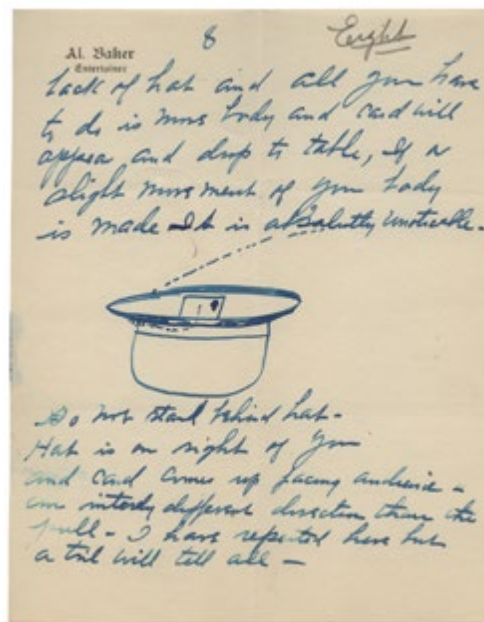 8
Eight
Al. Baker
Entertainer
back of hat and all you have
to do is move body and card will
appear and drop to table, If a
slight movement of your body
is made It is absolutly unoticable -
Do not stand behind hat -
Hat is on right of you
and card comes up facing audience -
an intirely different direction than the
pull - I have repeated here but
a trial will tell all -